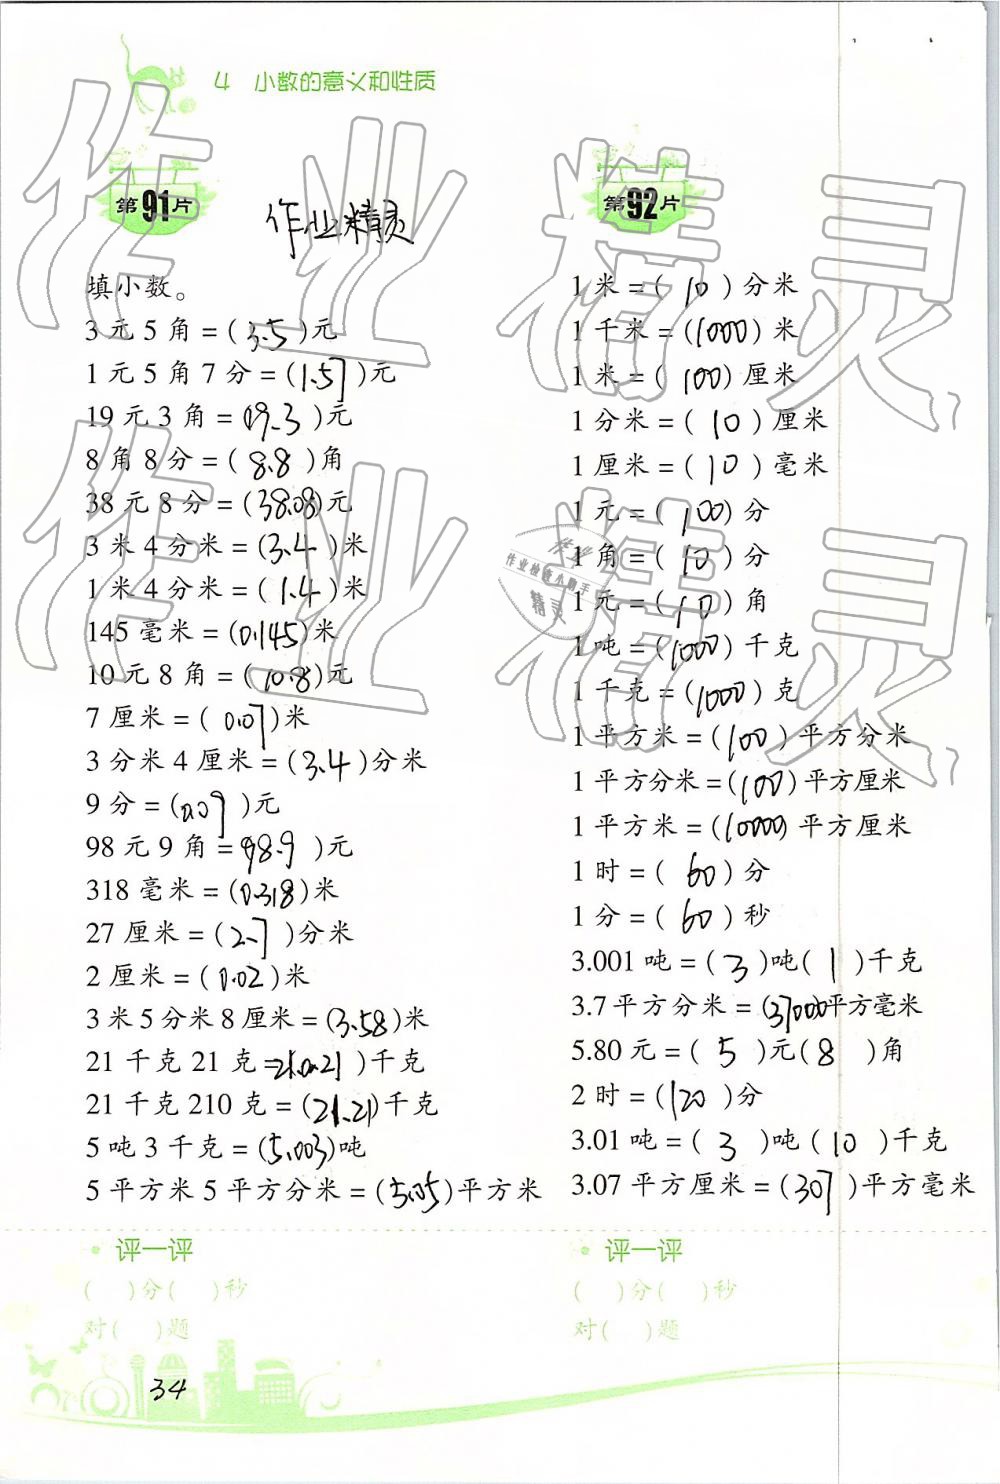 4 小数的意义和性质
第91片
作业精灵
填小数。
3元5角=(3.5)元
1元5角7分=(1.57)元
19元3角=(19.3)元
8角8分=(8.8)角
38元8分=(38.08)元
3米4分米=(3.4)米
1米4分米=(1.4)米
145毫米=(0.145)米
10元8角=(10.8)元
7厘米=(0.07)米
3分米4厘米=(3.4)分米
9分=(0.09)元
98元9角=98.9)元
318毫米=(0.318)米
27厘米=(2.7)分米
2厘米=(0.02)米
3米5分米8厘米=(3.58)米
21千克21克=21.021)千克
21千克210克=(21.21)千克
5吨3千克=(5.003)吨
5平方米5平方分米=(5.05)平方米
评一评
( )分( )秒
对( )题
34
第92片
1米=(10)分米
1千米=(1000)米
1米=(100)厘米
1分米=(10)厘米
1厘米=(10)毫米
1元=(100)分
1角=(10)分
1元=(10)角
1吨=(1000)千克
1千克=(1000)克
1平方米=(100)平方分米
1平方分米=(100)平方厘米
1平方米=(10000)平方厘米
1时=(60)分
1分=(60)秒
3.001吨=(3)吨(1)千克
3.7平方分米=(37000)平方毫米
5.80元=(5)元(8)角
2时=(120)分
3.01吨=(3)吨(10)千克
3.07平方厘米=(307)平方毫米
评一评
( )分( )秒
对( )题
作业精灵
作业精灵
作业检查小助手
精灵